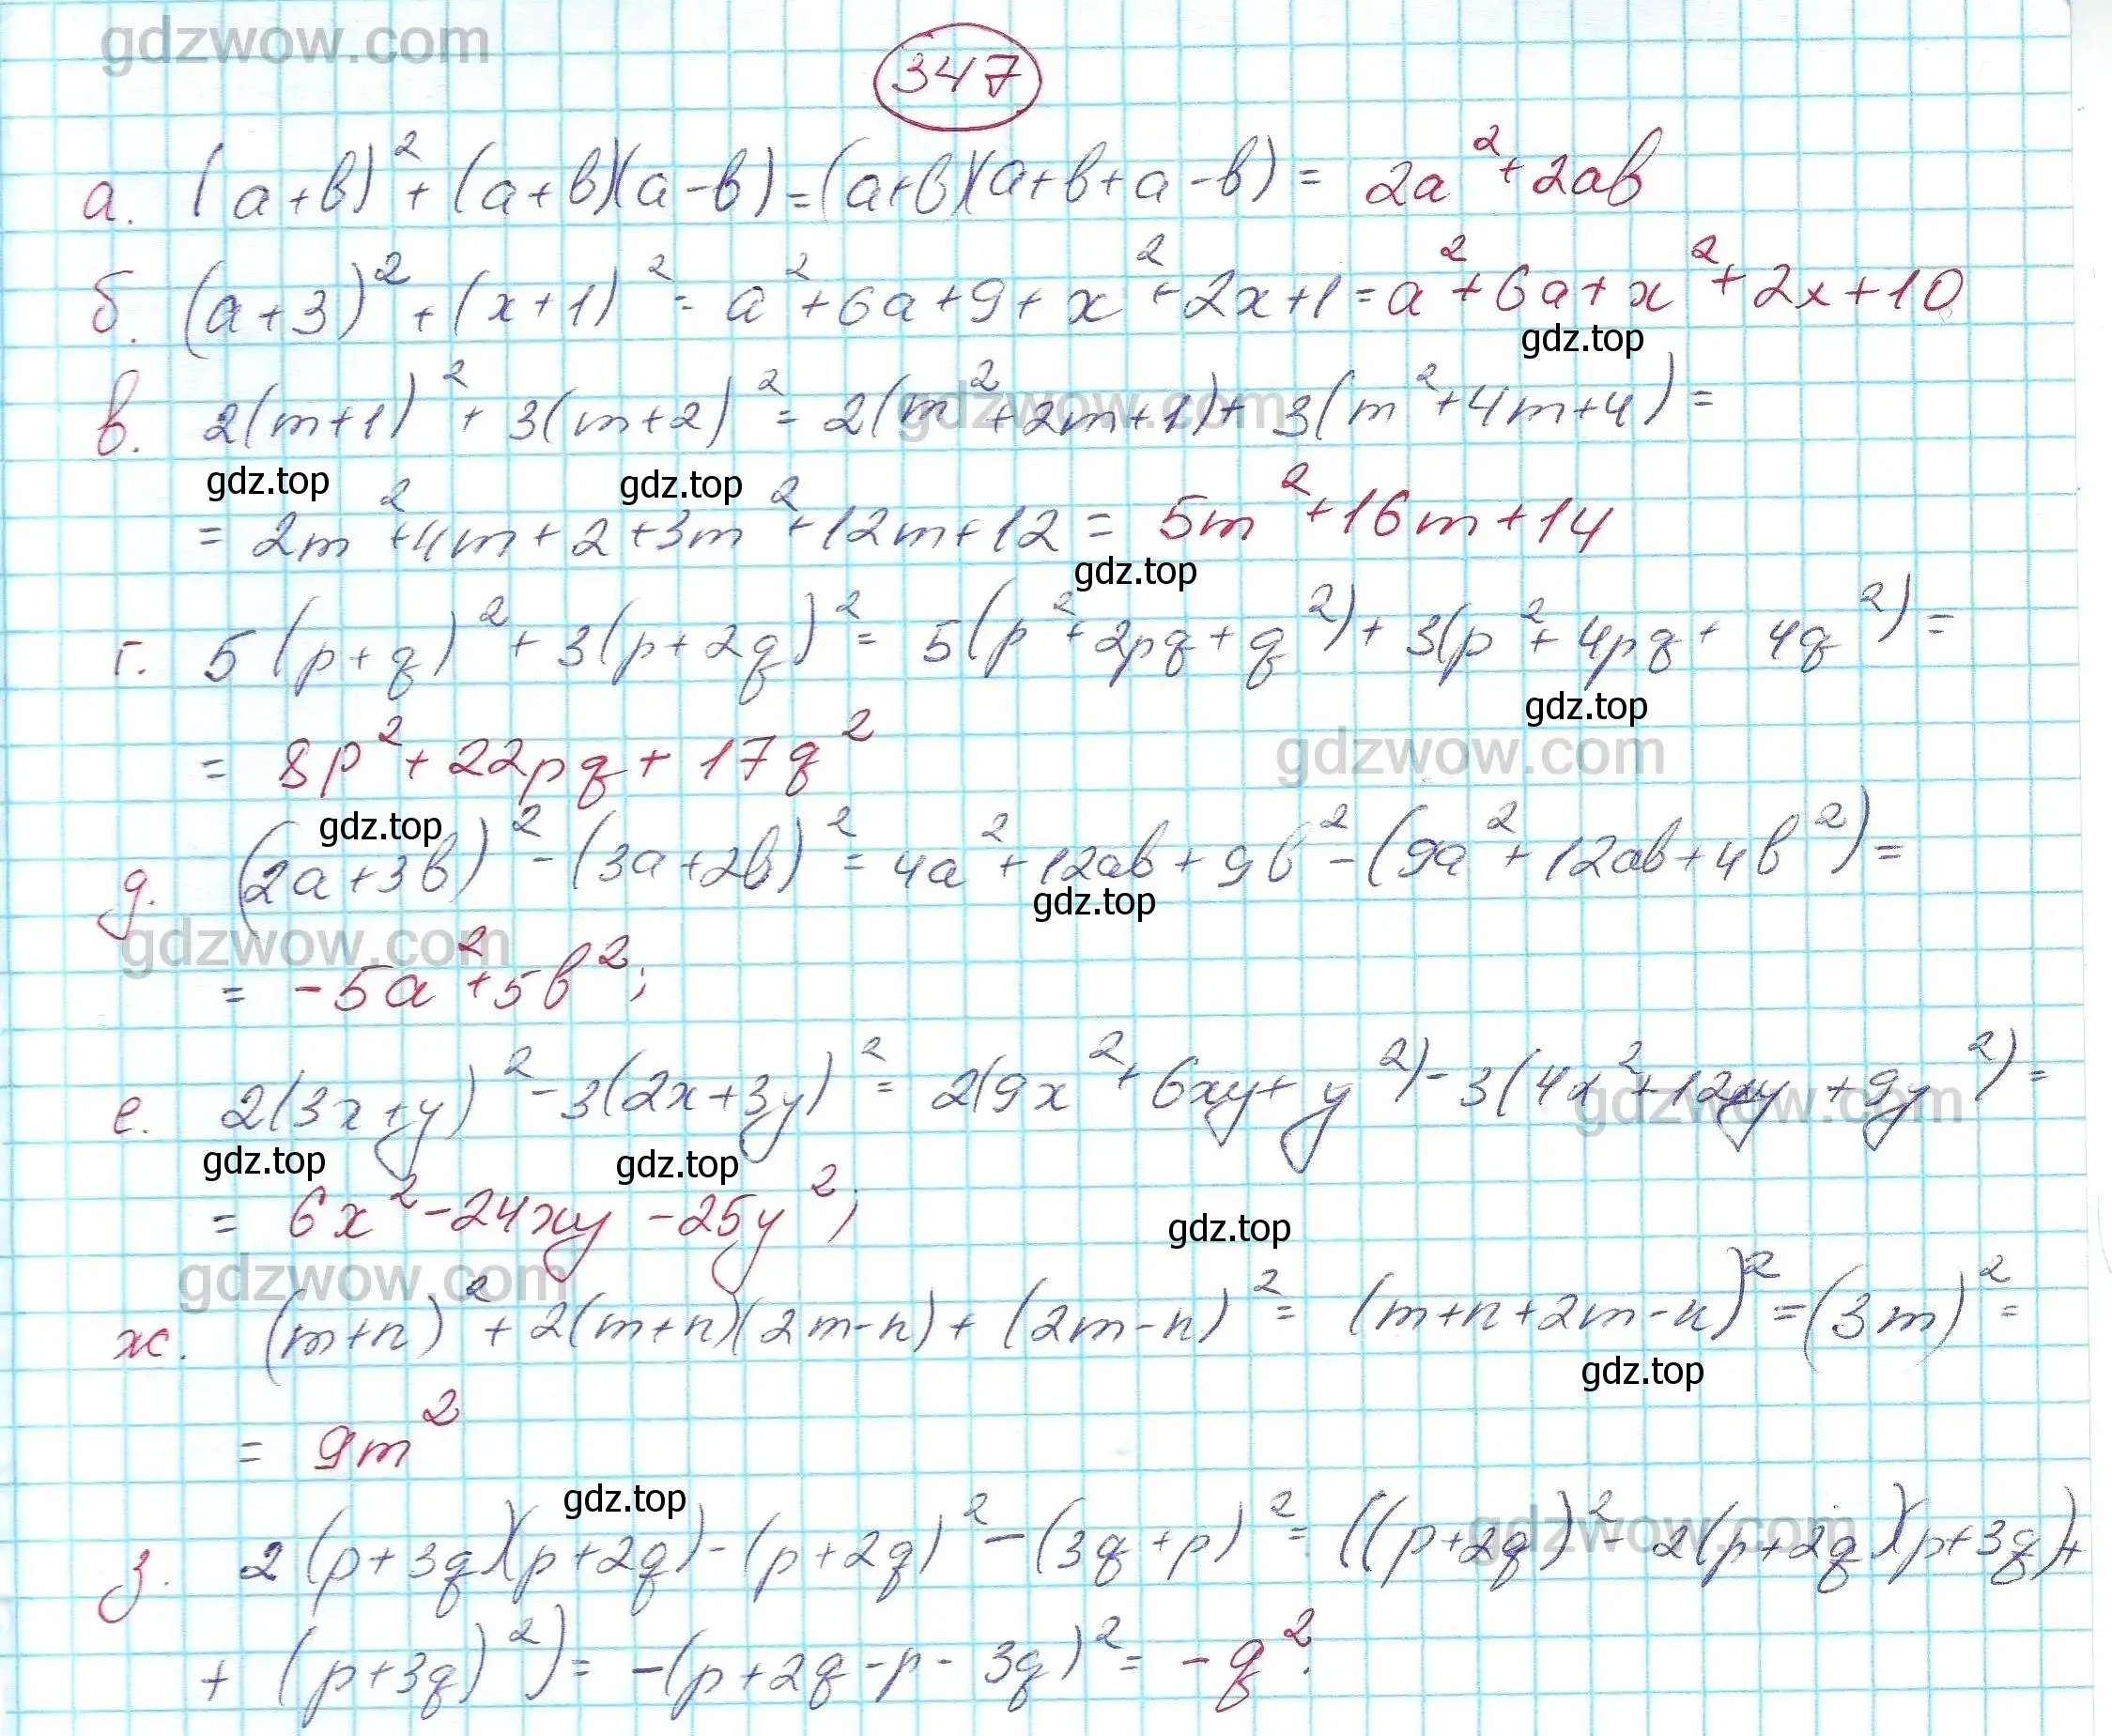 gdzwow.com
347
а. (a+b)²+(a+b)(a-b)=(a+b)(a+b+a-b)= 2a²+2ab
б. (a+3)²+(x+1)²= a²+6a+9+x²+2x+1=a²+6a+x²+2x+10
gdz.top
в. 2(m+1)²+3(m+2)²=2(m²+2m+1)+3(m²+4m+4)=
gdzwow.com
gdz.top gdz.top
= 2m²+4m+2+3m²+12m+12= 5m²+16m+14
gdz.top
г. 5(p+q)²+3(p+2q)²= 5(p²+2pq+q²)+3(p²+4pq+4q²)=
gdz.top
= 8p²+22pq+17q²
gdzwow.com
gdz.top
д. (2a+3b)²-(3a+2b)²=4a²+12ab+9b²-(9a²+12ab+4b²)=
gdz.top
gdzwow.com
= -5a²+5b²;
е. 2(3x+y)²-3(2x+3y)²= 2(9x²+6xy+y²)-3(4x²+12xy+9y²)=
gdzwow.com
gdz.top gdz.top
= 6x²-24xy-25y²;
gdz.top
gdzwow.com
ж. (m+n)²+2(m+n)(2m-n)+(2m-n)²= (m+n+2m-n)²=(3m)²=
gdz.top
= 9m²
gdz.top
з. 2(p+3q)(p+2q)-(p+2q)²-(3q+p)²= ((p+2q)²-2(p+2q)(p+3q)+
gdzwow.com
+ (p+3q)²)= -(p+2q-p-3q)²= -q².